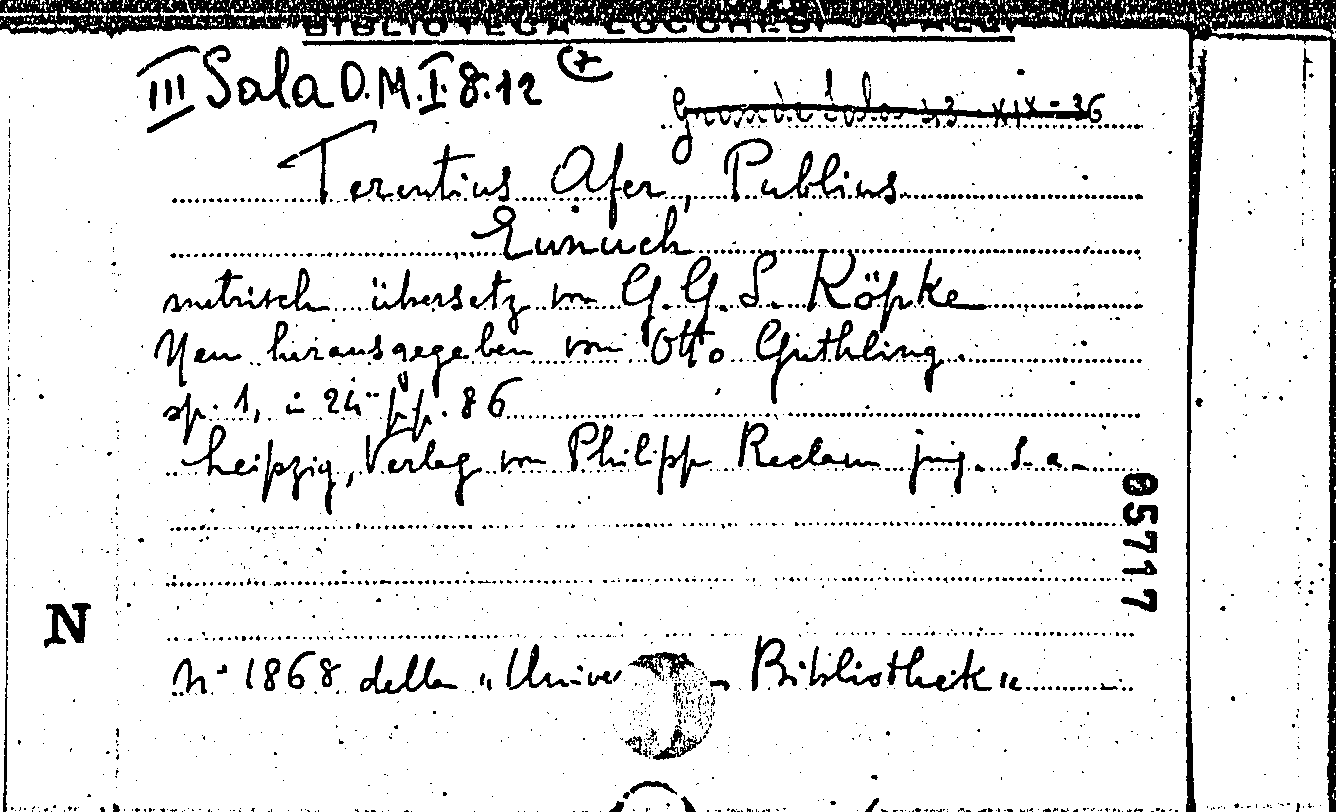 BIBLIOTECA LUCCHESI - PALLI
III Sala O.M.I.8.12 (7
Grande Sala 23-XIX-36
Terentius Afer, Publius
Eunuch
metrisch übersetz von G.G.S. Köpke
Neu herausgegeben von Otto Güthling.
sp. 1, in 24° pp. 86
Leipzig, Verlag von Philipp Reclam jun. s.a.
05717
N
N° 1868 della "Unive - Bibliothek"